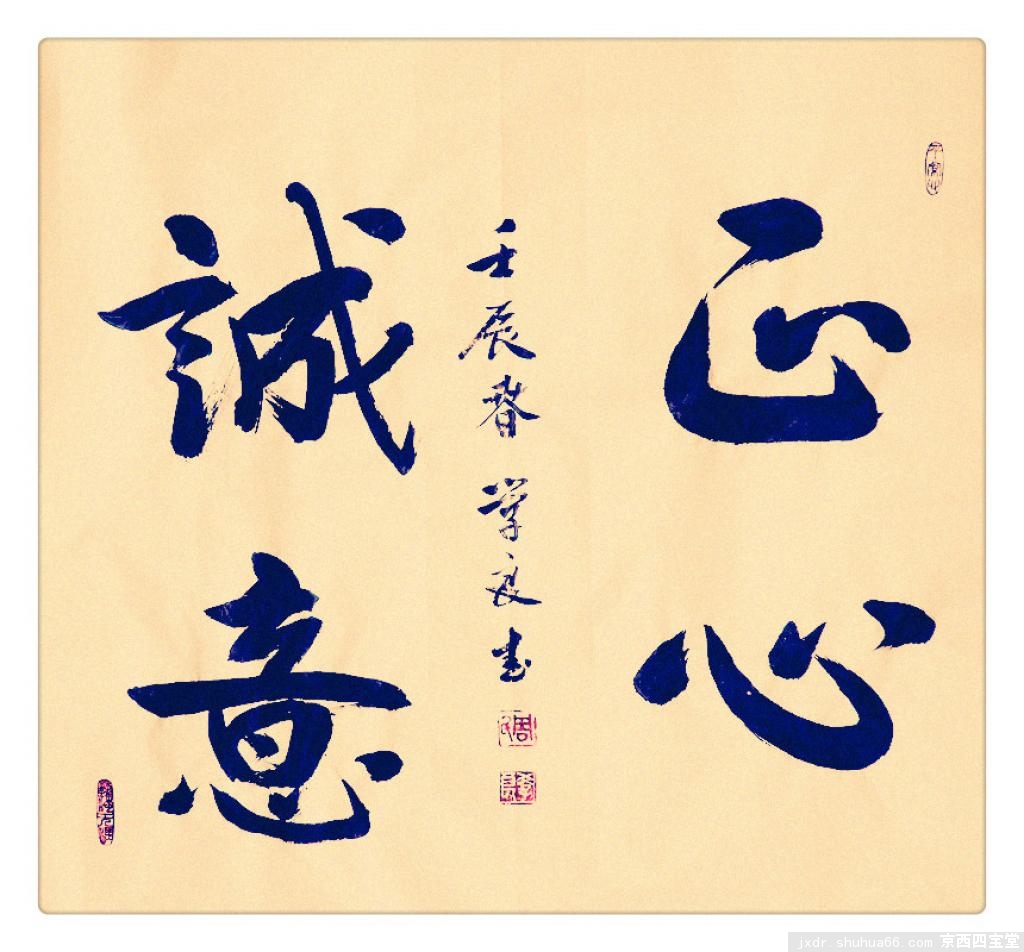 正心
誠意
壬辰春學良書
jxdr.shuhua66.com 京西四宝堂